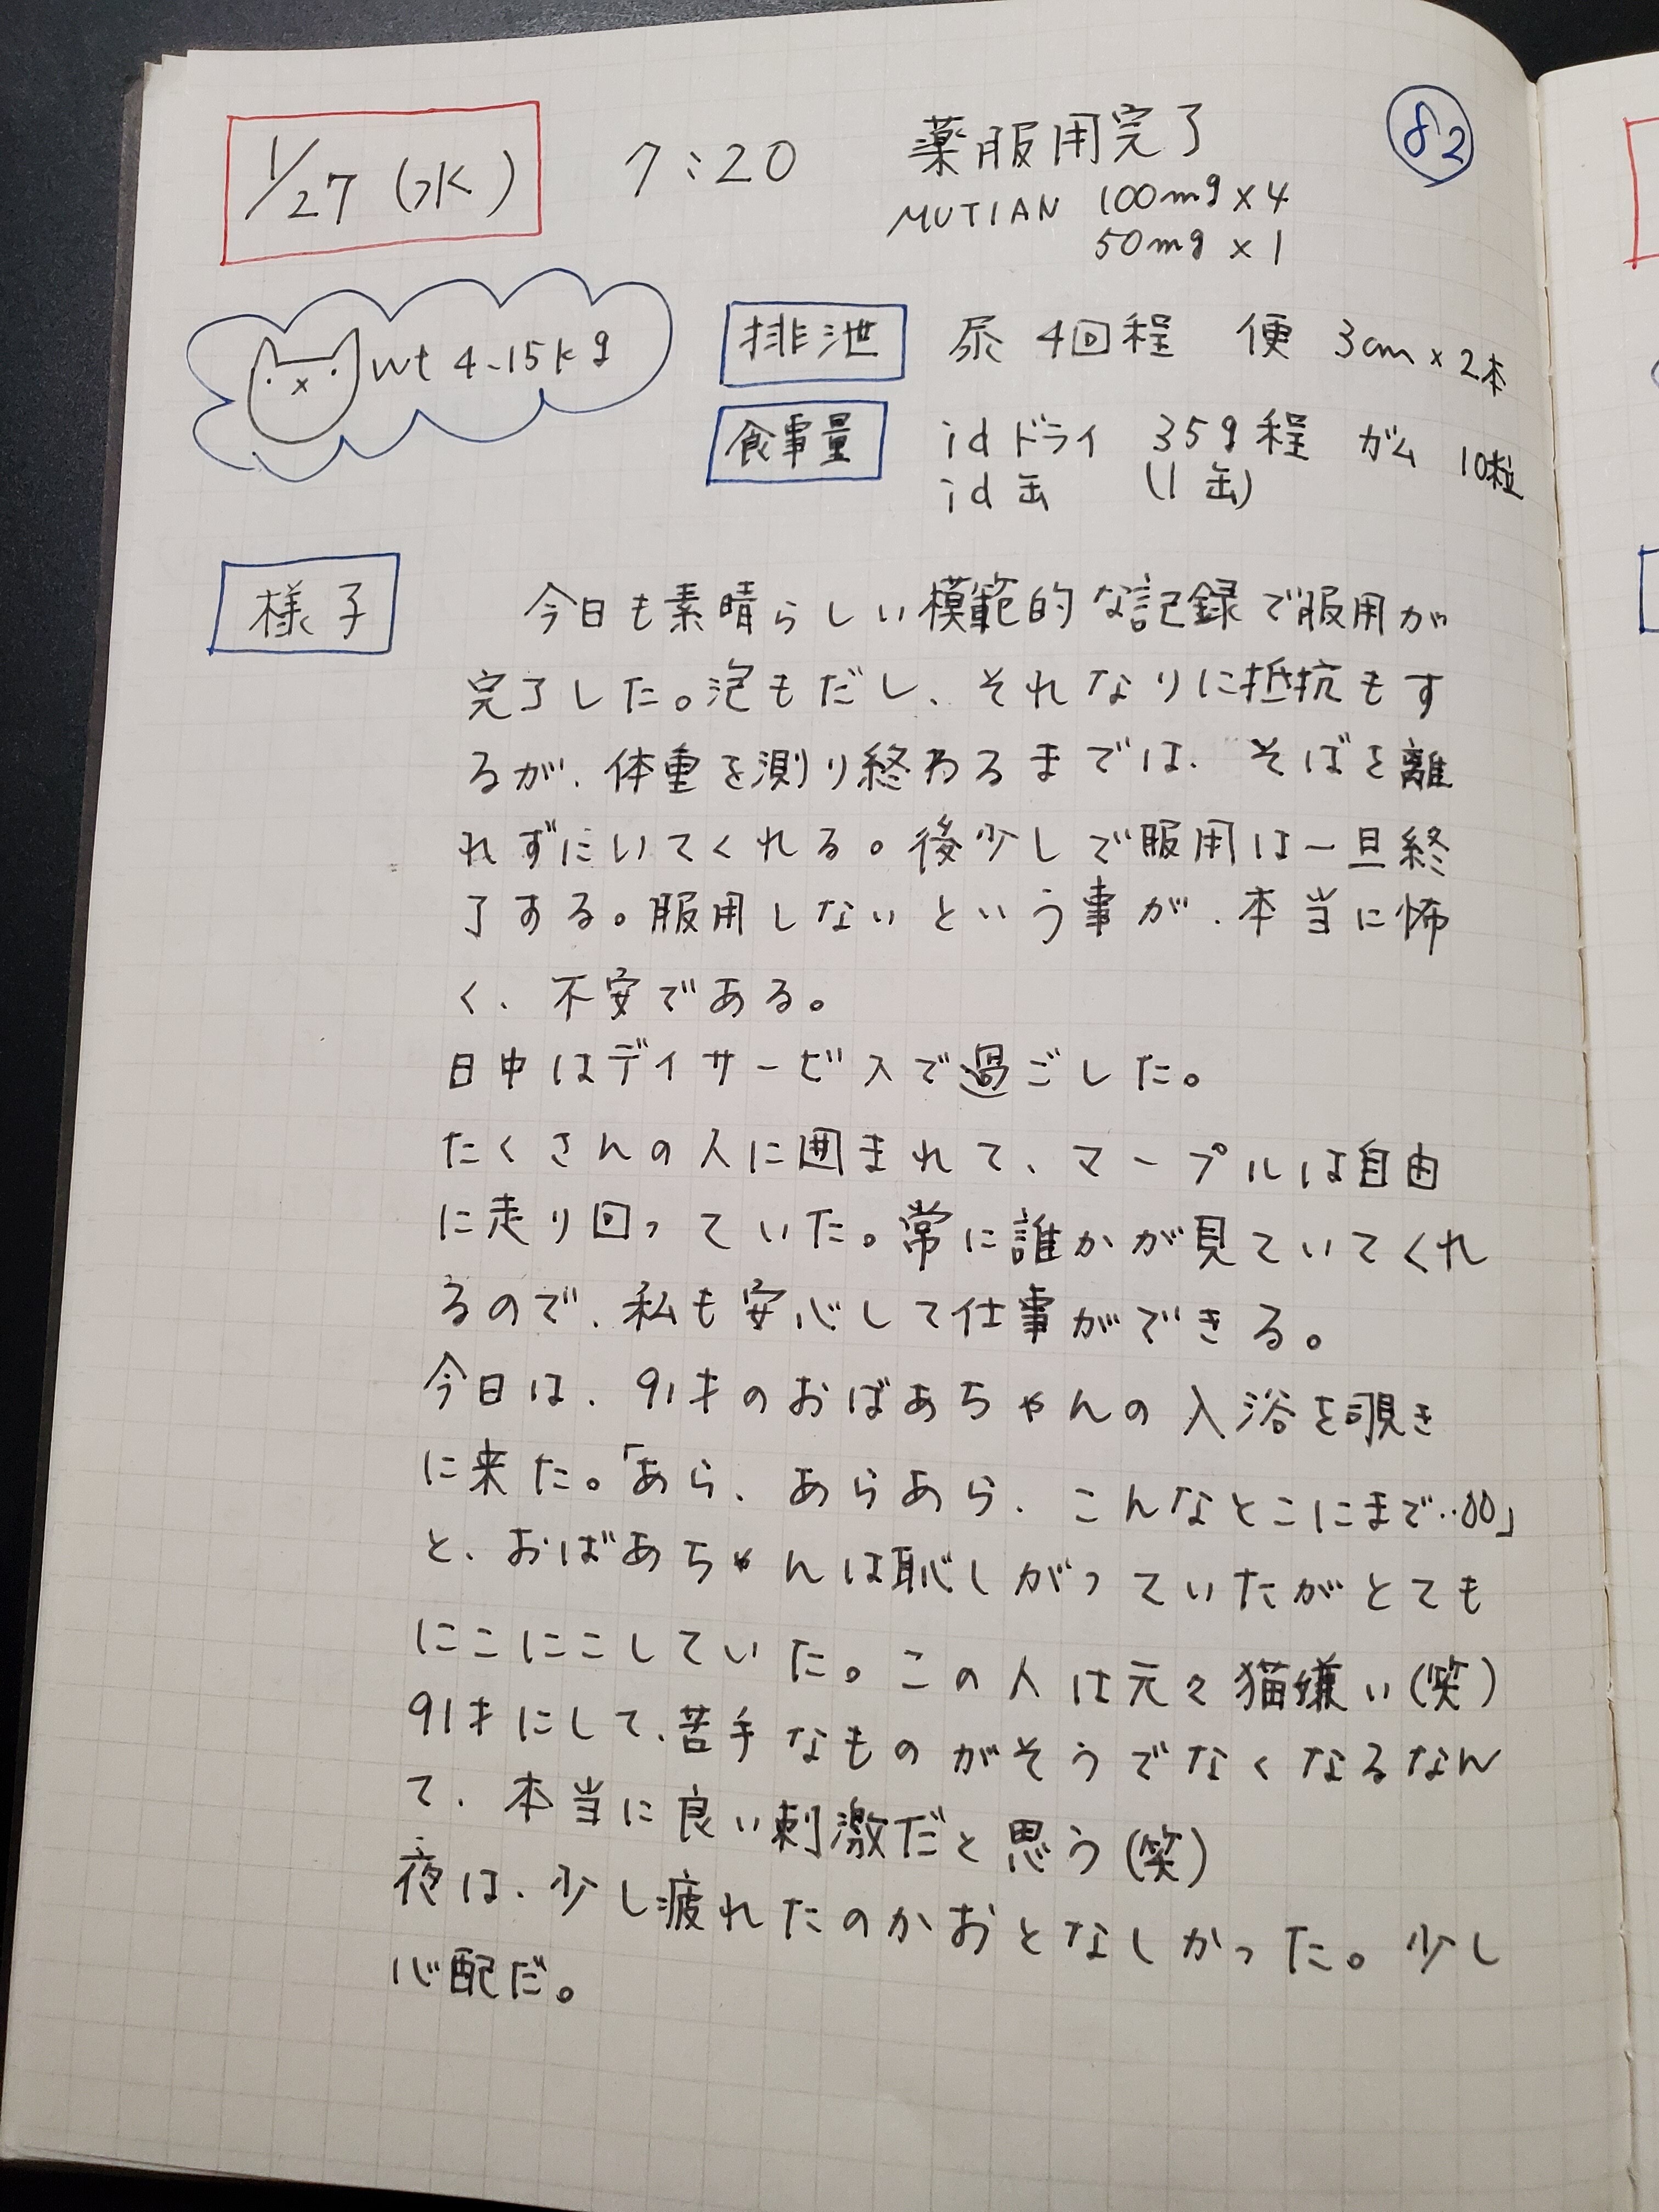 1/27(水) 7:20 薬服用完了 82
MUTIAN 100mg×4
50mg×1
wt 4.15kg
排泄 尿 4回程 便 3cm×2本
食事量 idドライ 35g程 ガム 10粒
id缶 (1缶)
様子 今日も素晴らしい模範的な記録で服用が
完了した。泡もだし、それなりに抵抗もす
るが、体重を測り終わるまでは、そばを離
れずにいてくれる。後少しで服用は一旦終
了する。服用しないという事が、本当に怖
く、不安である。
日中はデイサービスで過ごした。
たくさんの人に囲まれて、マープルは自由
に走り回っていた。常に誰かが見ていてくれ
るので、私も安心して仕事ができる。
今日は、91才のおばあちゃんの入浴を覗き
に来た。「あら、あらあら、こんなとこにまで‥00」
と、おばあちゃんは恥しがっていたがとても
にこにこしていた。この人は元々猫嫌い(笑)
91才にして、苦手なものがそうでなくなるなん
て、本当に良い刺激だと思う(笑)
夜は、少し疲れたのかおとなしかった。少し
心配だ。